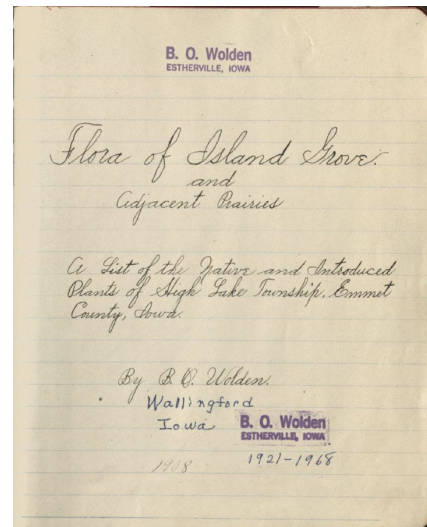 B. O. Wolden
ESTHERVILLE, IOWA
Flora of Island Grove.
and
Adjacent Prairies
A List of the Native and Introduced
Plants of High Lake Township, Emmet
County, Iowa.
By B. O. Wolden.
Wallingford
Iowa
B. O. Wolden
ESTHERVILLE, IOWA
1921-1968